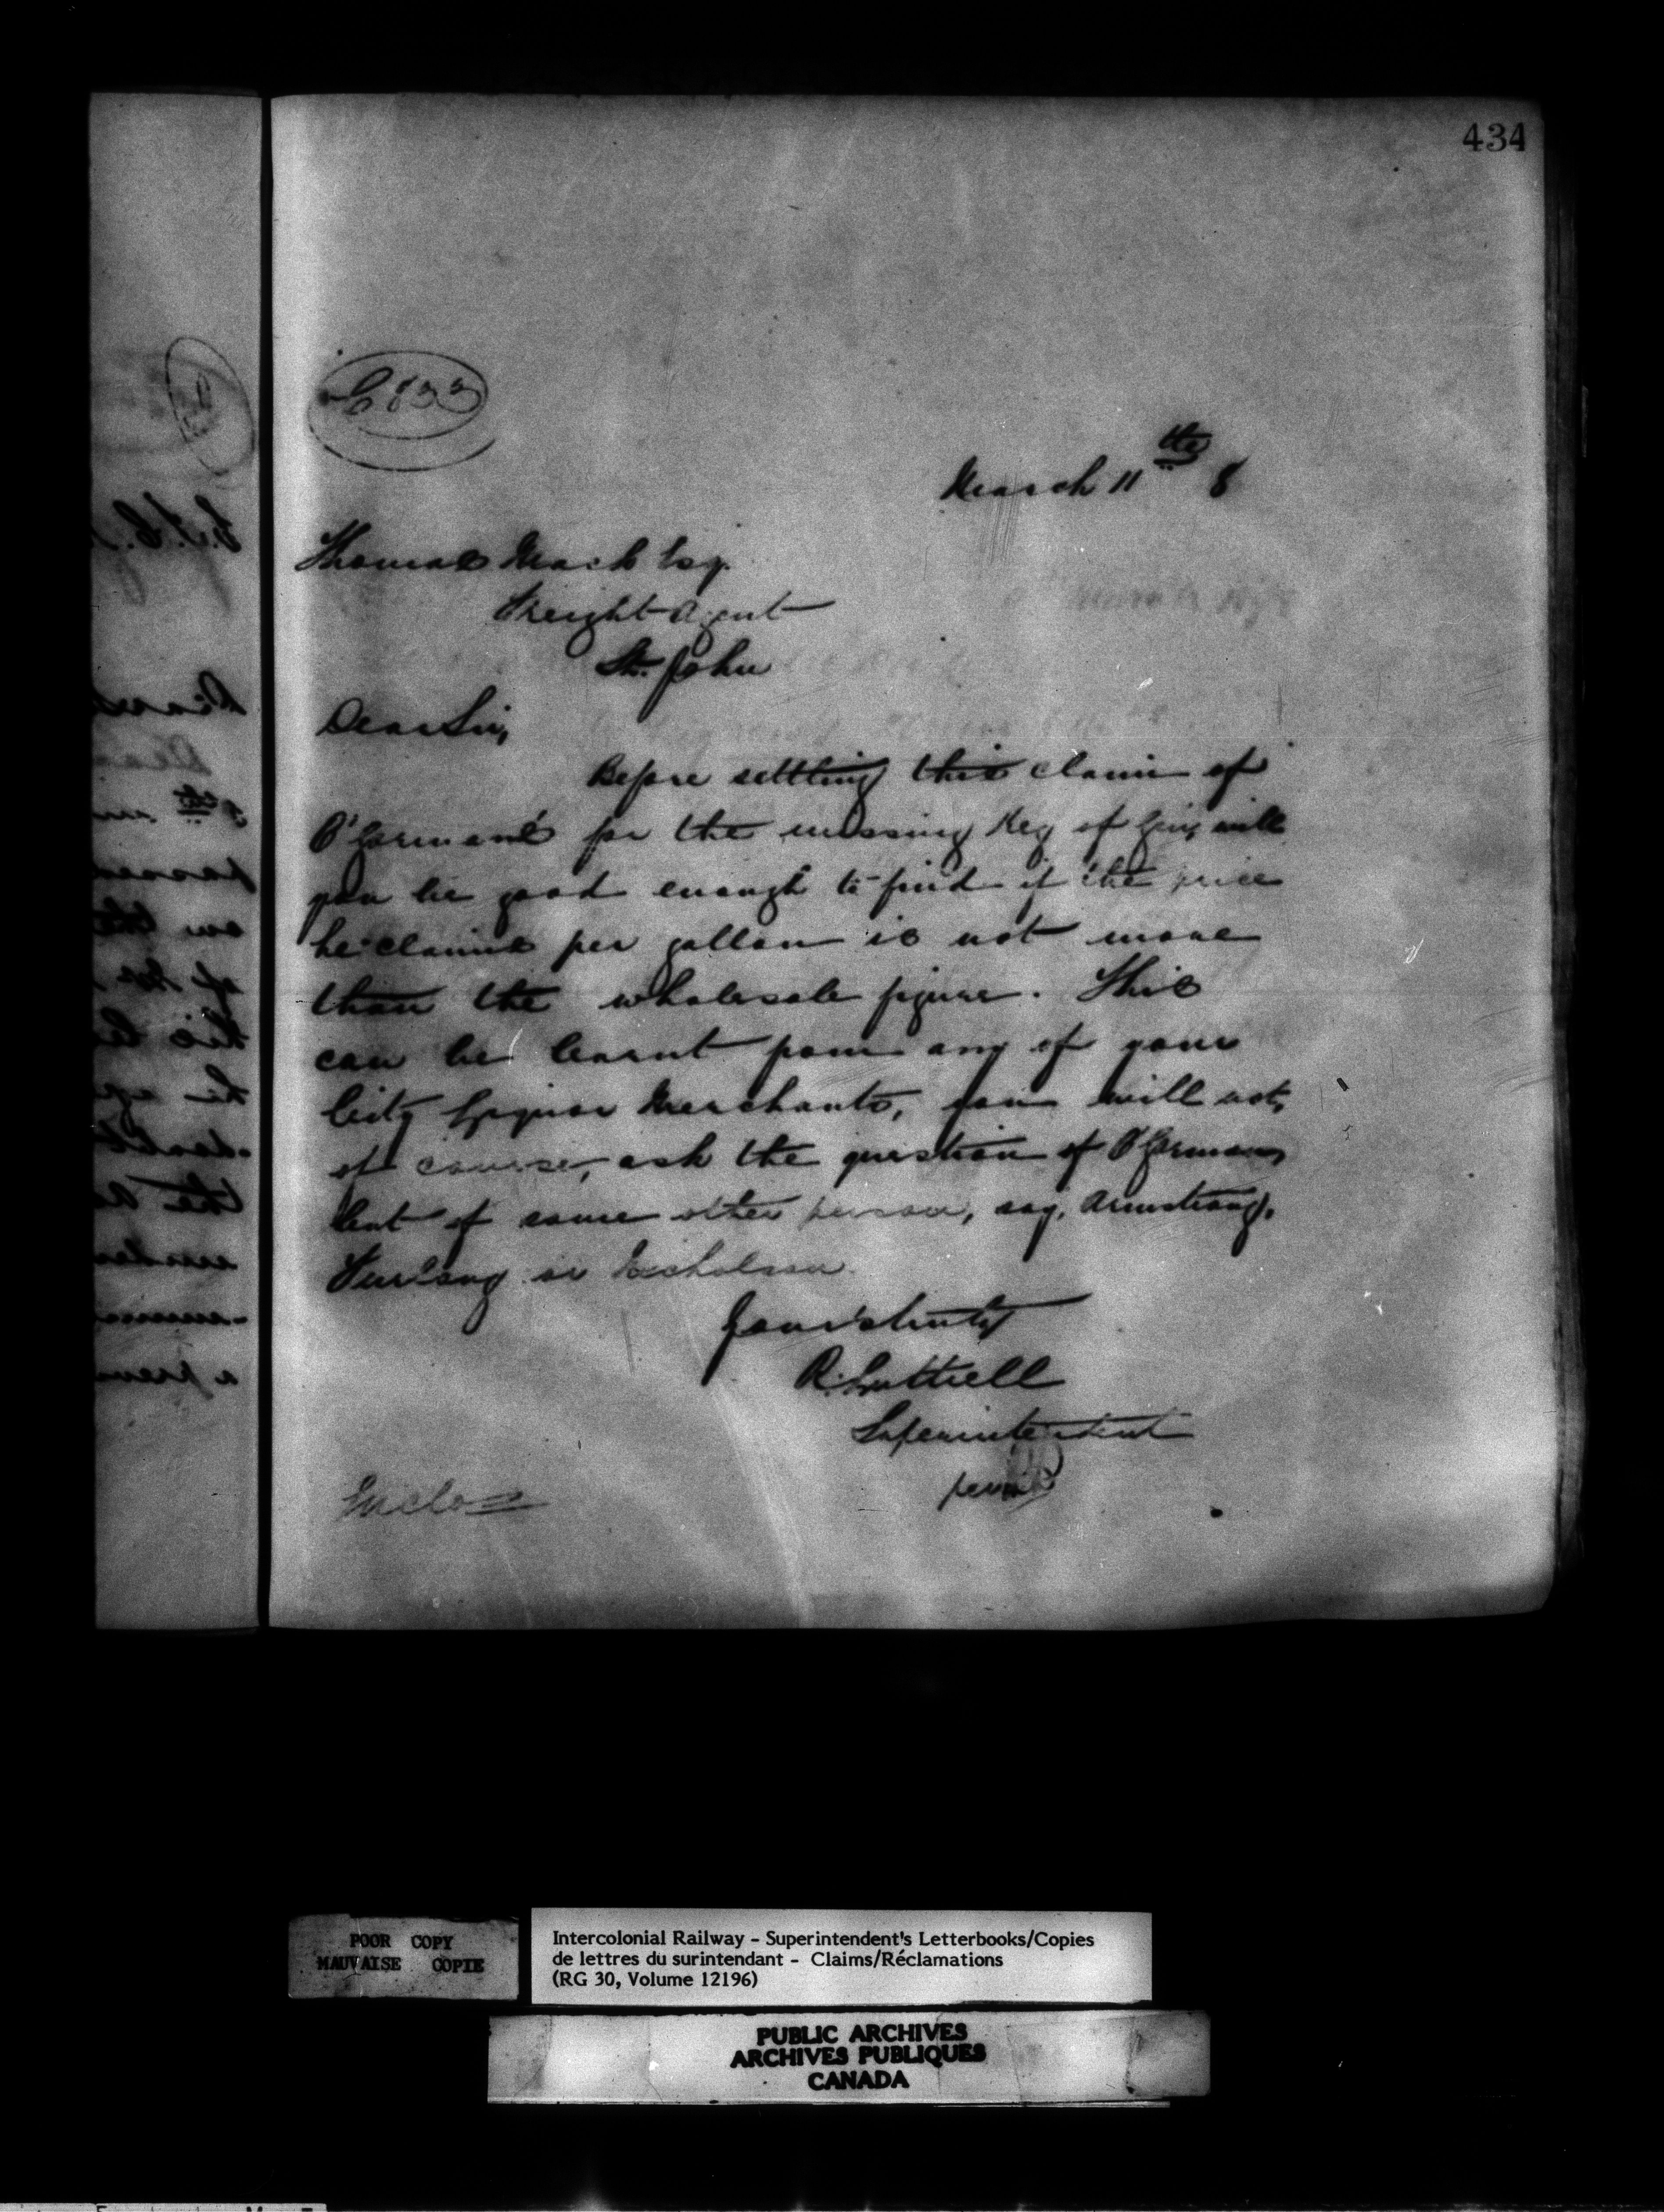 434
C 833
March 11th 8
Thomas Mack Esq.
Freight Agent
St. John
Dear Sir,
Before settling this claim of
O'Gorman's for the missing Keg of Gin, will
you be good enough to find if the price
he claims per gallon is not more
than the wholesale figure. This
can be learnt from any of your
City Liquor Merchants, you will not,
of course, ask the question of O'Gorman,
but of some other person, say, Armstrong,
Furlong or Nicholson
Yours truly
R. Luttrell
Superintendent
per
Enclos
POOR COPY
MAUVAISE COPIE
Intercolonial Railway - Superintendent's Letterbooks/Copies
de lettres du surintendant - Claims/Réclamations
(RG 30, Volume 12196)
PUBLIC ARCHIVES
ARCHIVES PUBLIQUES
CANADA